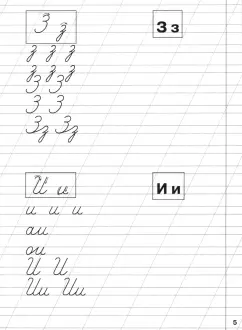 З з
З з
з з з
з з з
З З
З З
Зз Зз
И и
И и
и и и
аи
ои
И И
Ии Ии
5